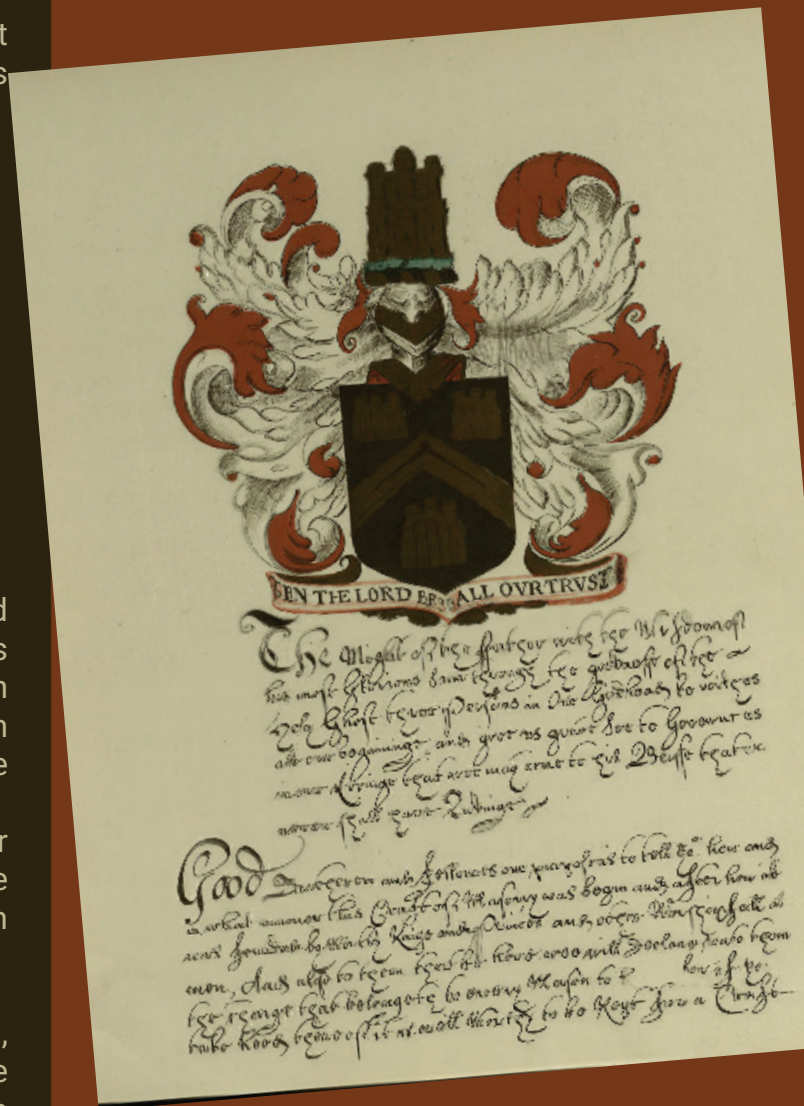 IN THE LORD IS ALL OVR TRVST
The Might of the ffather with the Wisdome of
his most glorious Sonn through the goodnesse of the
Holy Ghost three Persons in One Godhead be with us
att our beginninge and give us grace soe to Governe us
in our Livinge that wee may come to his Blisse that
never shall have Endinge
Good Bretheren and Fellowes our purpose is to tell you how and
in what manner this Craft of Masonry was begun and after how it
was founded by Worthy Kings and Princes and other Worshipfull
men, And also to them that be here wee will Declare
the charge that belongeth to every Mason to
take heed thereof it is well Worthy to be Kept for a